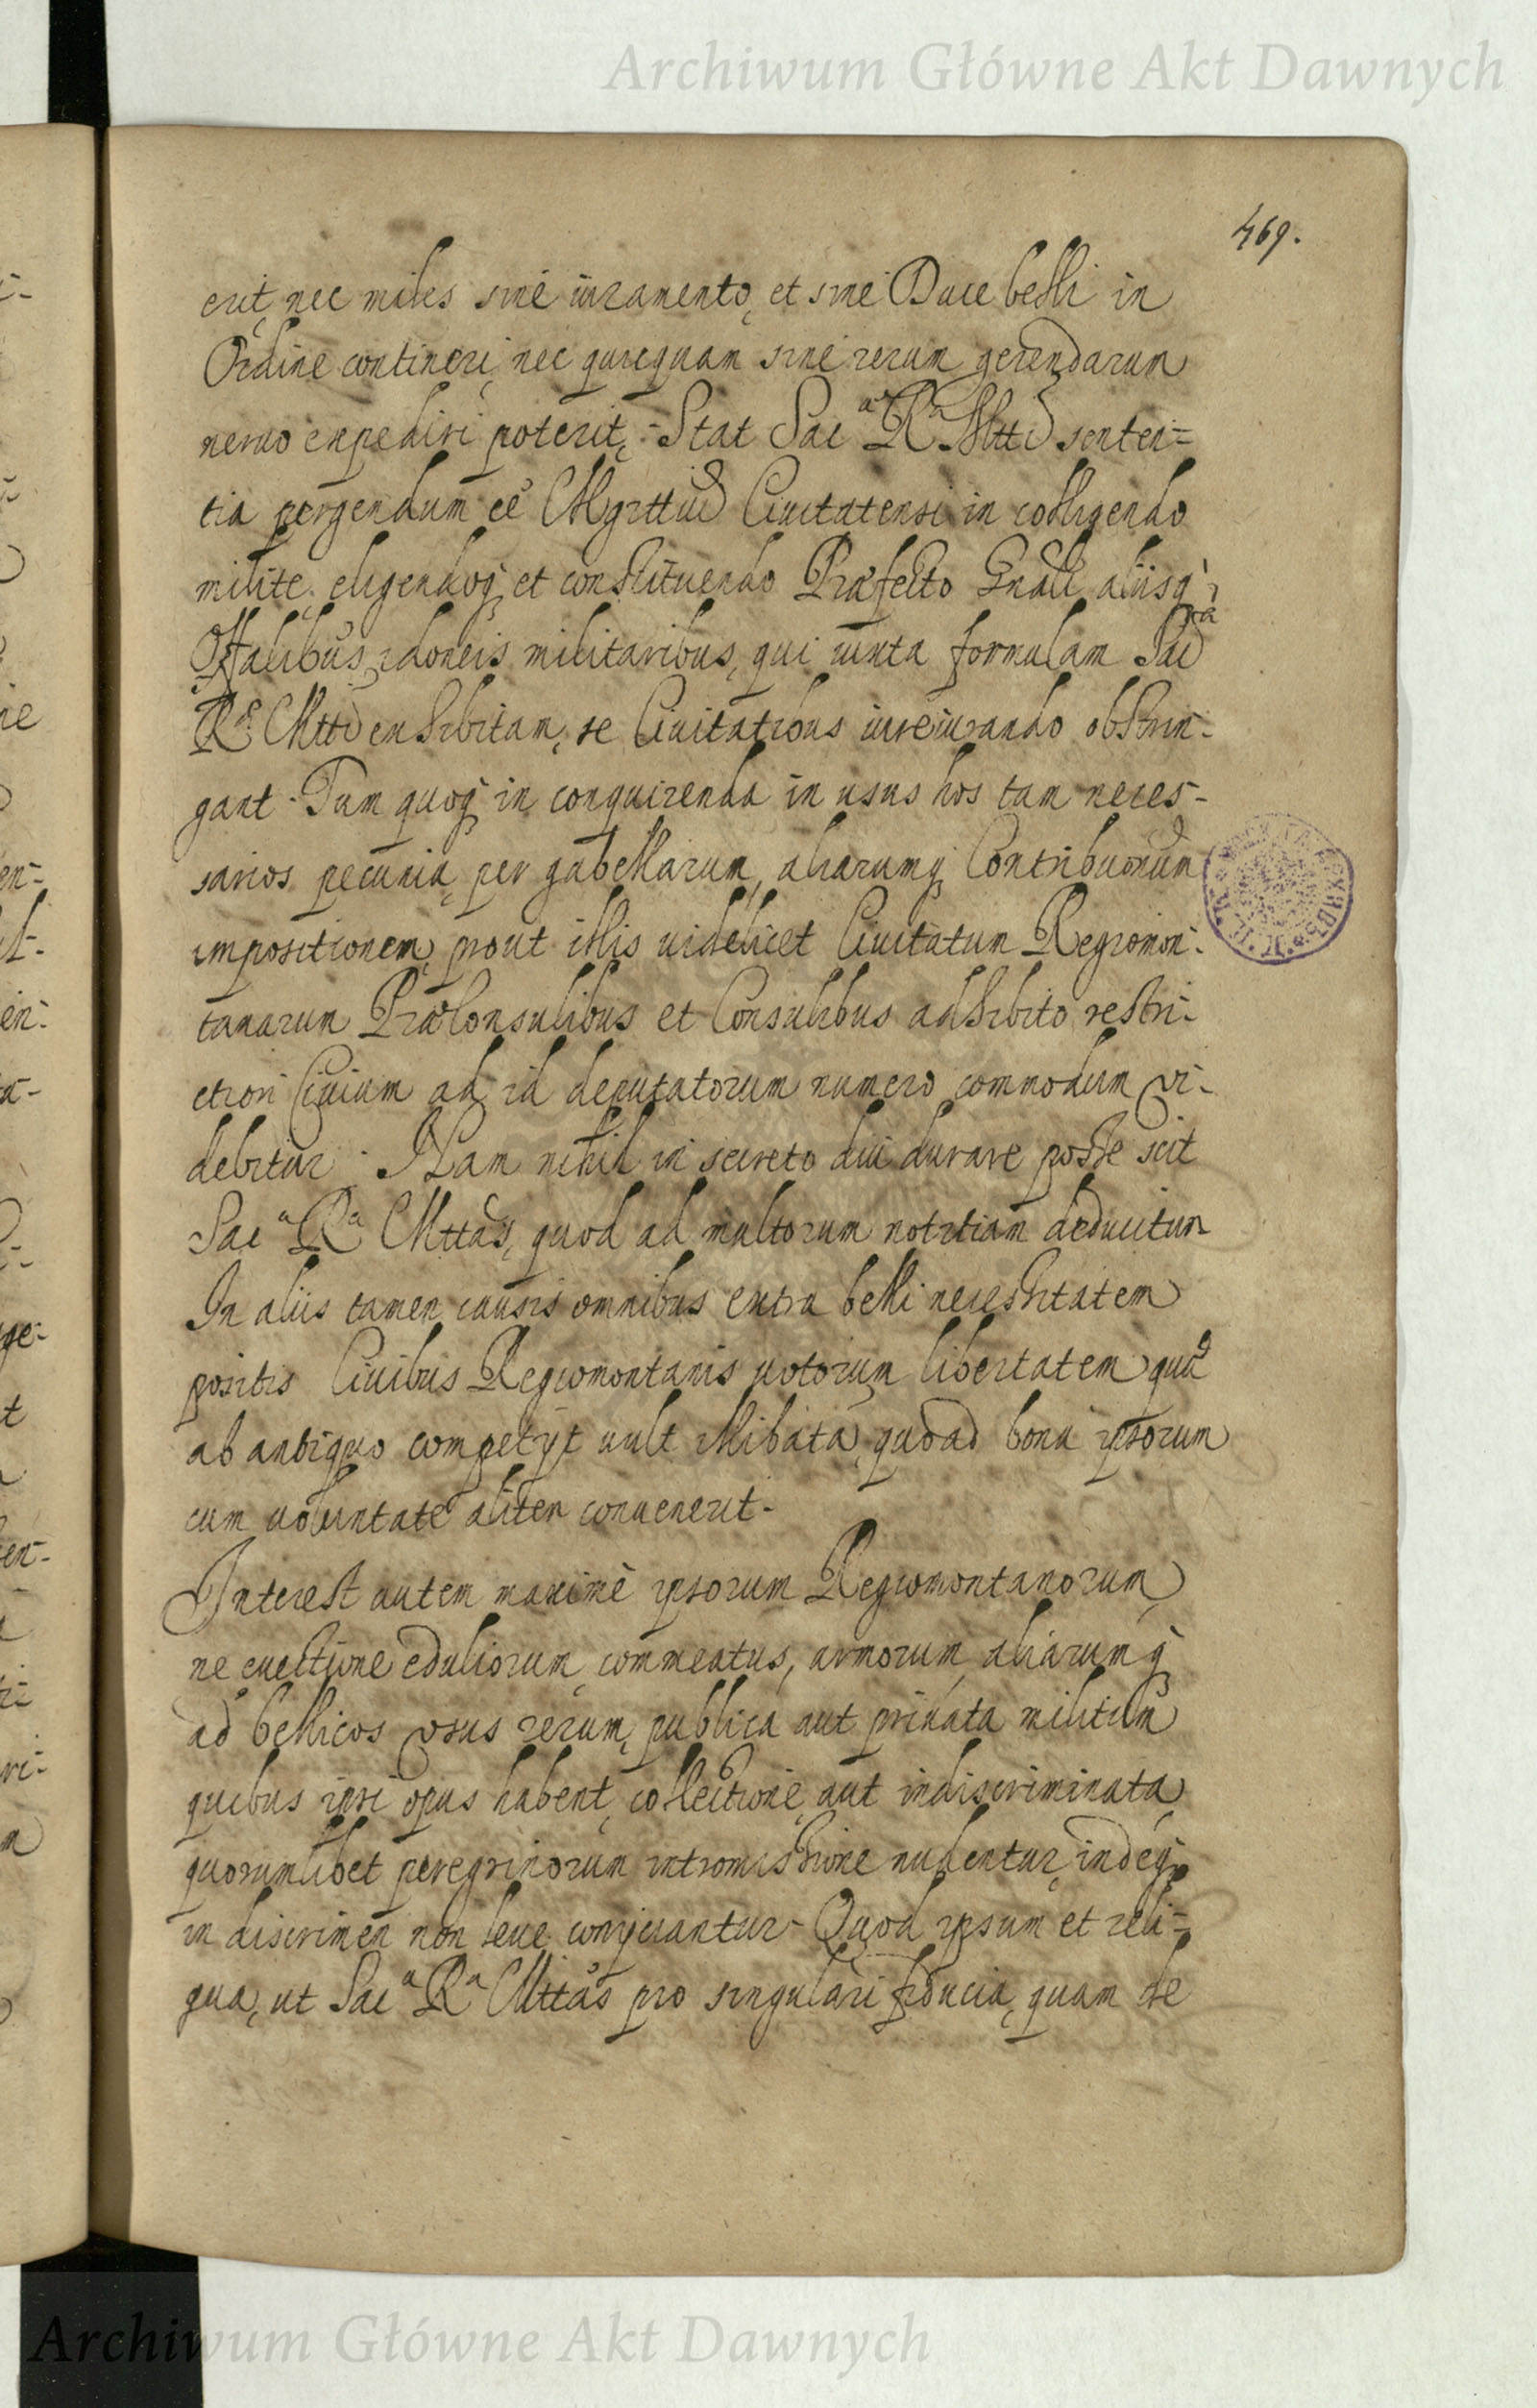 Archiwum Główne Akt Dawnych
469.
erit, nec miles sine iuramento, et sine Duce belli in
Ordine contineri, nec quicquam sine rerum gerendarum
neruo expediri poterit, Stat Sac.ᵃ R.ᵃ Mttis senten=
tia pergendum eē Mgrttui Ciuitatensi in colligendo
milite, eligendoq̨ et constituendo Præfecto Gnāli aliisq̨
Offalibus idoneis militaribus, qui iuxta formulam Sacra
Rᵉ Mtti exhibitam, se Ciuitatibus iureiurando obstrin-
gant. Tum quoq̨ in conquirenda in usus hos tam neces-
sarios pecunia, per gabellarum, aliarumq̨ Contribuonum
impositionem, prout illis uidelicet Ciuitatum Regiomon-
tanarum PræConsulibus et Consulibus adhibito restri-
ctiori Ciuium ad id deputatorum numero commodum vi-
debitur. Nam nihil in secreto diu durare posse scit
Sacᵃ Rᵃ Mttas, quod ad multorum notitiam deducitur
In aliis tamen causis omnibus extra belli necessitatem
positis Ciuibus Regiomontanis uotorum libertatem quæ
ab antiquo competijt uult illibatā, quoad bona ipsorum
cum uoluntate aliter conuenerit.
Interest autem maximè ipsorum Regiomontanorum,
ne euectione eduliorum, commeatus, armorum, aliarumq̨
ad bellicos vsus rerum, publica aut priuata militum
quibus ipsi opus habent, collectione, aut indiscriminata
quorumlibet peregrinorum intromissione nudentur, indeq̨
in discrimen non leue conijciantur. Quod ipsum et reli=
qua, ut Sacᵃ Rᵃ Mttas pro singulari fiducia, quam de
Archiwum Główne Akt Dawnych